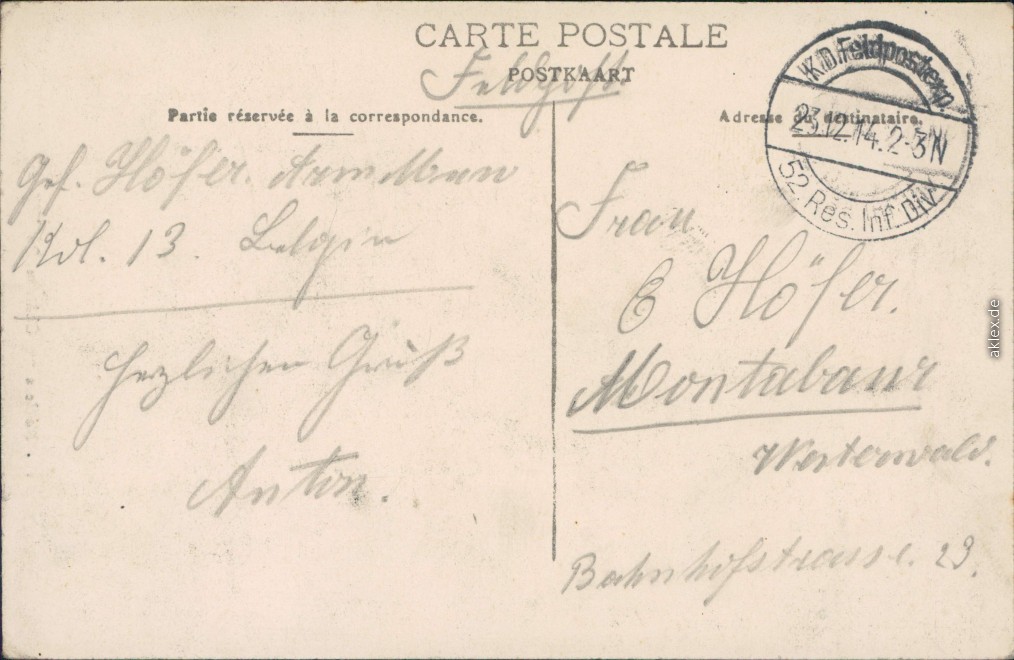 CARTE POSTALE
POSTKAART
Feldpost.
Partie réservée à la correspondance.
Adresse du destinataire.
K.D. Feldpostexp.
23.12.14. 2-3N
52. Res. Inf. DIV.
Gef. Höfer.
Kol. 13. Belgien
Herzlichen Gruß
Anton.
Frau
E Höfer.
Montabaur
Westerwald.
Bahnhofstrasse. 29.
aklex.de